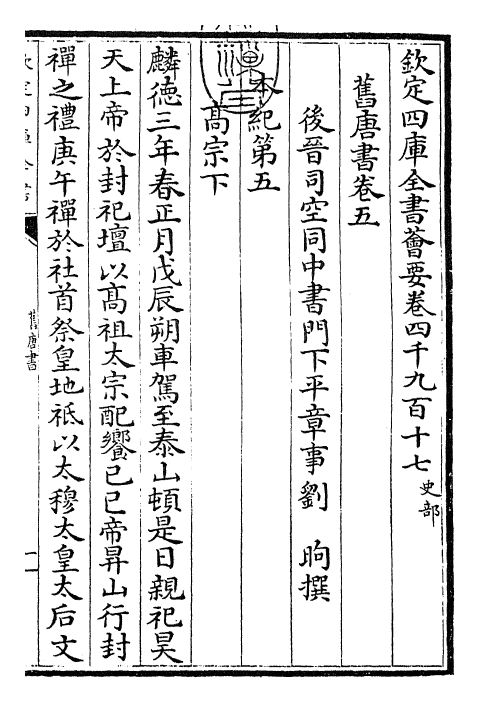 欽定四庫全書薈要卷四千九百十七 史部
舊唐書卷五
後晉司空同中書門下平章事劉 昫撰
本紀第五
高宗下
麟徳三年春正月戊辰朔車駕至泰山頓是日親祀昊
天上帝於封祀壇以髙祖太宗配饗己巳帝昇山行封
禪之禮庚午禪於社首祭皇地祇以太穆太皇太后文
舊唐書
一